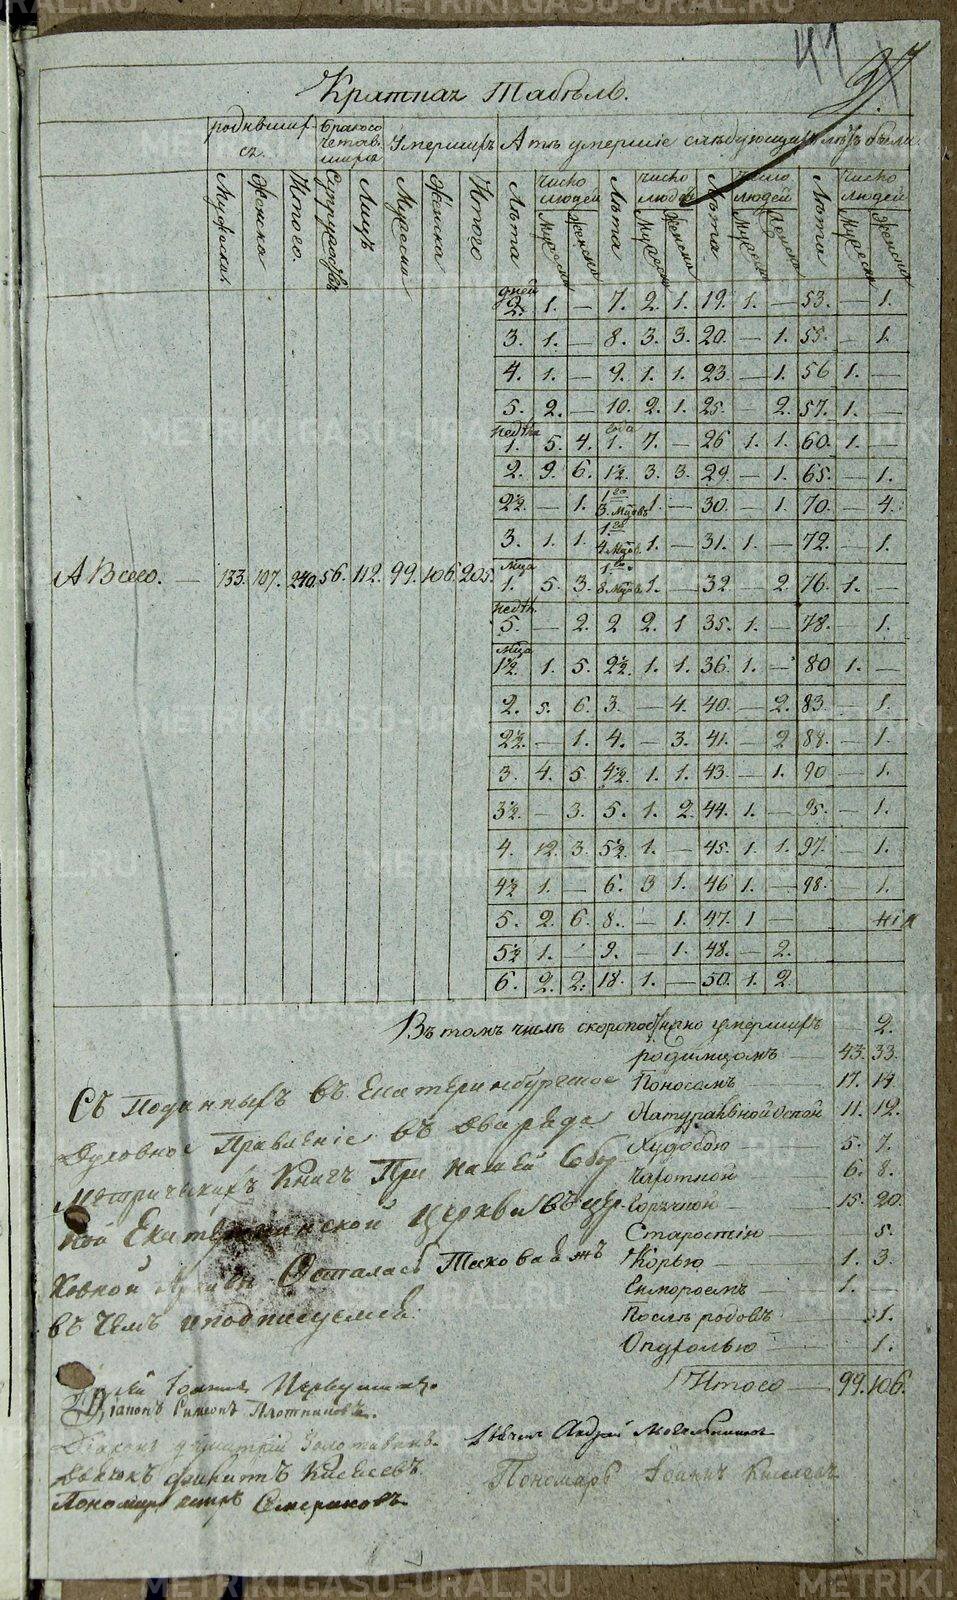 41
Краткая Табѣль.
родившихся. Бракосочетавшихся Умершихъ А тѣ умершіе слѣдующихъ лѣтъ были.
Мужеска Женска Итого. Супружествъ Лицъ Мужеска Женска Итого Лѣта число людей Мужеска Женска Лѣта число людей Мужеска Женска Лѣта число людей Мужеска Женска Лѣта число людей Мужеска Женска
дней 2. 1. — 7. 2. 1. 19. 1. — 53. — 1.
3. 1. — 8. 3. 3. 20. — 1. 55. — 1.
4. 1. — 9. 1. 1. 23. — 1. 56 1. —
5. 2. — 10. 2. 1. 25. — 2. 57. 1. —
недѣль 1. 5. 4. года 1. 7. — 26 1. 1. 60. 1. —
2. 9. 6. 1½. 3. 3. 29. — 1. 65. — 1.
2½. — 1. 1го 3. Мцовъ 1. — 30. — 1. 70. — 4.
3. 1. 1. 1го 4. Мцов. 1. — 31. 1. — 72. — 1.
А Всего. — 133. 107. 240. 56. 112. 99. 106. 205. Мца 1. 5. 3. 1го 8. Мцов. 1. — 32 — 2. 76. 1. —
недѣл. 5. — 2. 2 2. 1 35. 1. — 78. — 1.
Мца 1½. 1. 5. 2½. 1. 1. 36. 1. — 80 1. —
2. 5. 6. 3. — 4. 40. — 2. 83. — 1.
2½. — 1. 4. — 3. 41. — 2 88. — 1.
3. 4. 5. 4½. 1. 1. 43. — 1. 90 — 1.
3½. — 3. 5. 1. 2. 44. 1. — 95. — 1.
4. 12. 3. 5½. 1. — 45. 1. 1. 97. — 1.
4½ 1. — 6. 3 1. 46 1. — 98. — 1.
5. 2. 6. 8. — 1. 47. 1 —
5½ 1. 9. — 1. 48. — 2.
6. 2. 2. 18. 1. — 50. 1. 2.
Въ томъ числѣ скоропостижно умершихъ 2.
родимцомъ — 43. 33.
Поносомъ — 17. 14.
Натуральной Оспой 11. 12.
Худобою — 5. 7.
Чахоткой — 6. 8.
Горячкой — 15. 20.
Старостію — 5.
Корью — 1. 3.
1. —
Послѣ родовъ — 1.
Опухолью — 1.
Итого — 99. 106.
Съ Поданныхъ въ Екатеринбургское
Духовное Правленіе въ
Метрическихъ Книгъ При нашей Собор
ной Екатерининской церкви въ цер
ковной Архивѣ Осталась Таковая жъ
въ чемъ и подписуемся.
Іерей Іоаннъ
Діаконъ Симеонъ Плотниковъ.
Діаконъ Димитрій Золотавинъ.
Дьячокъ Филипъ Киселевъ.
Пономарь Петръ
Дьячекъ Андрей
Пономарь Іоаннъ Киселевъ
METRIKI.GASO-URAL.RU